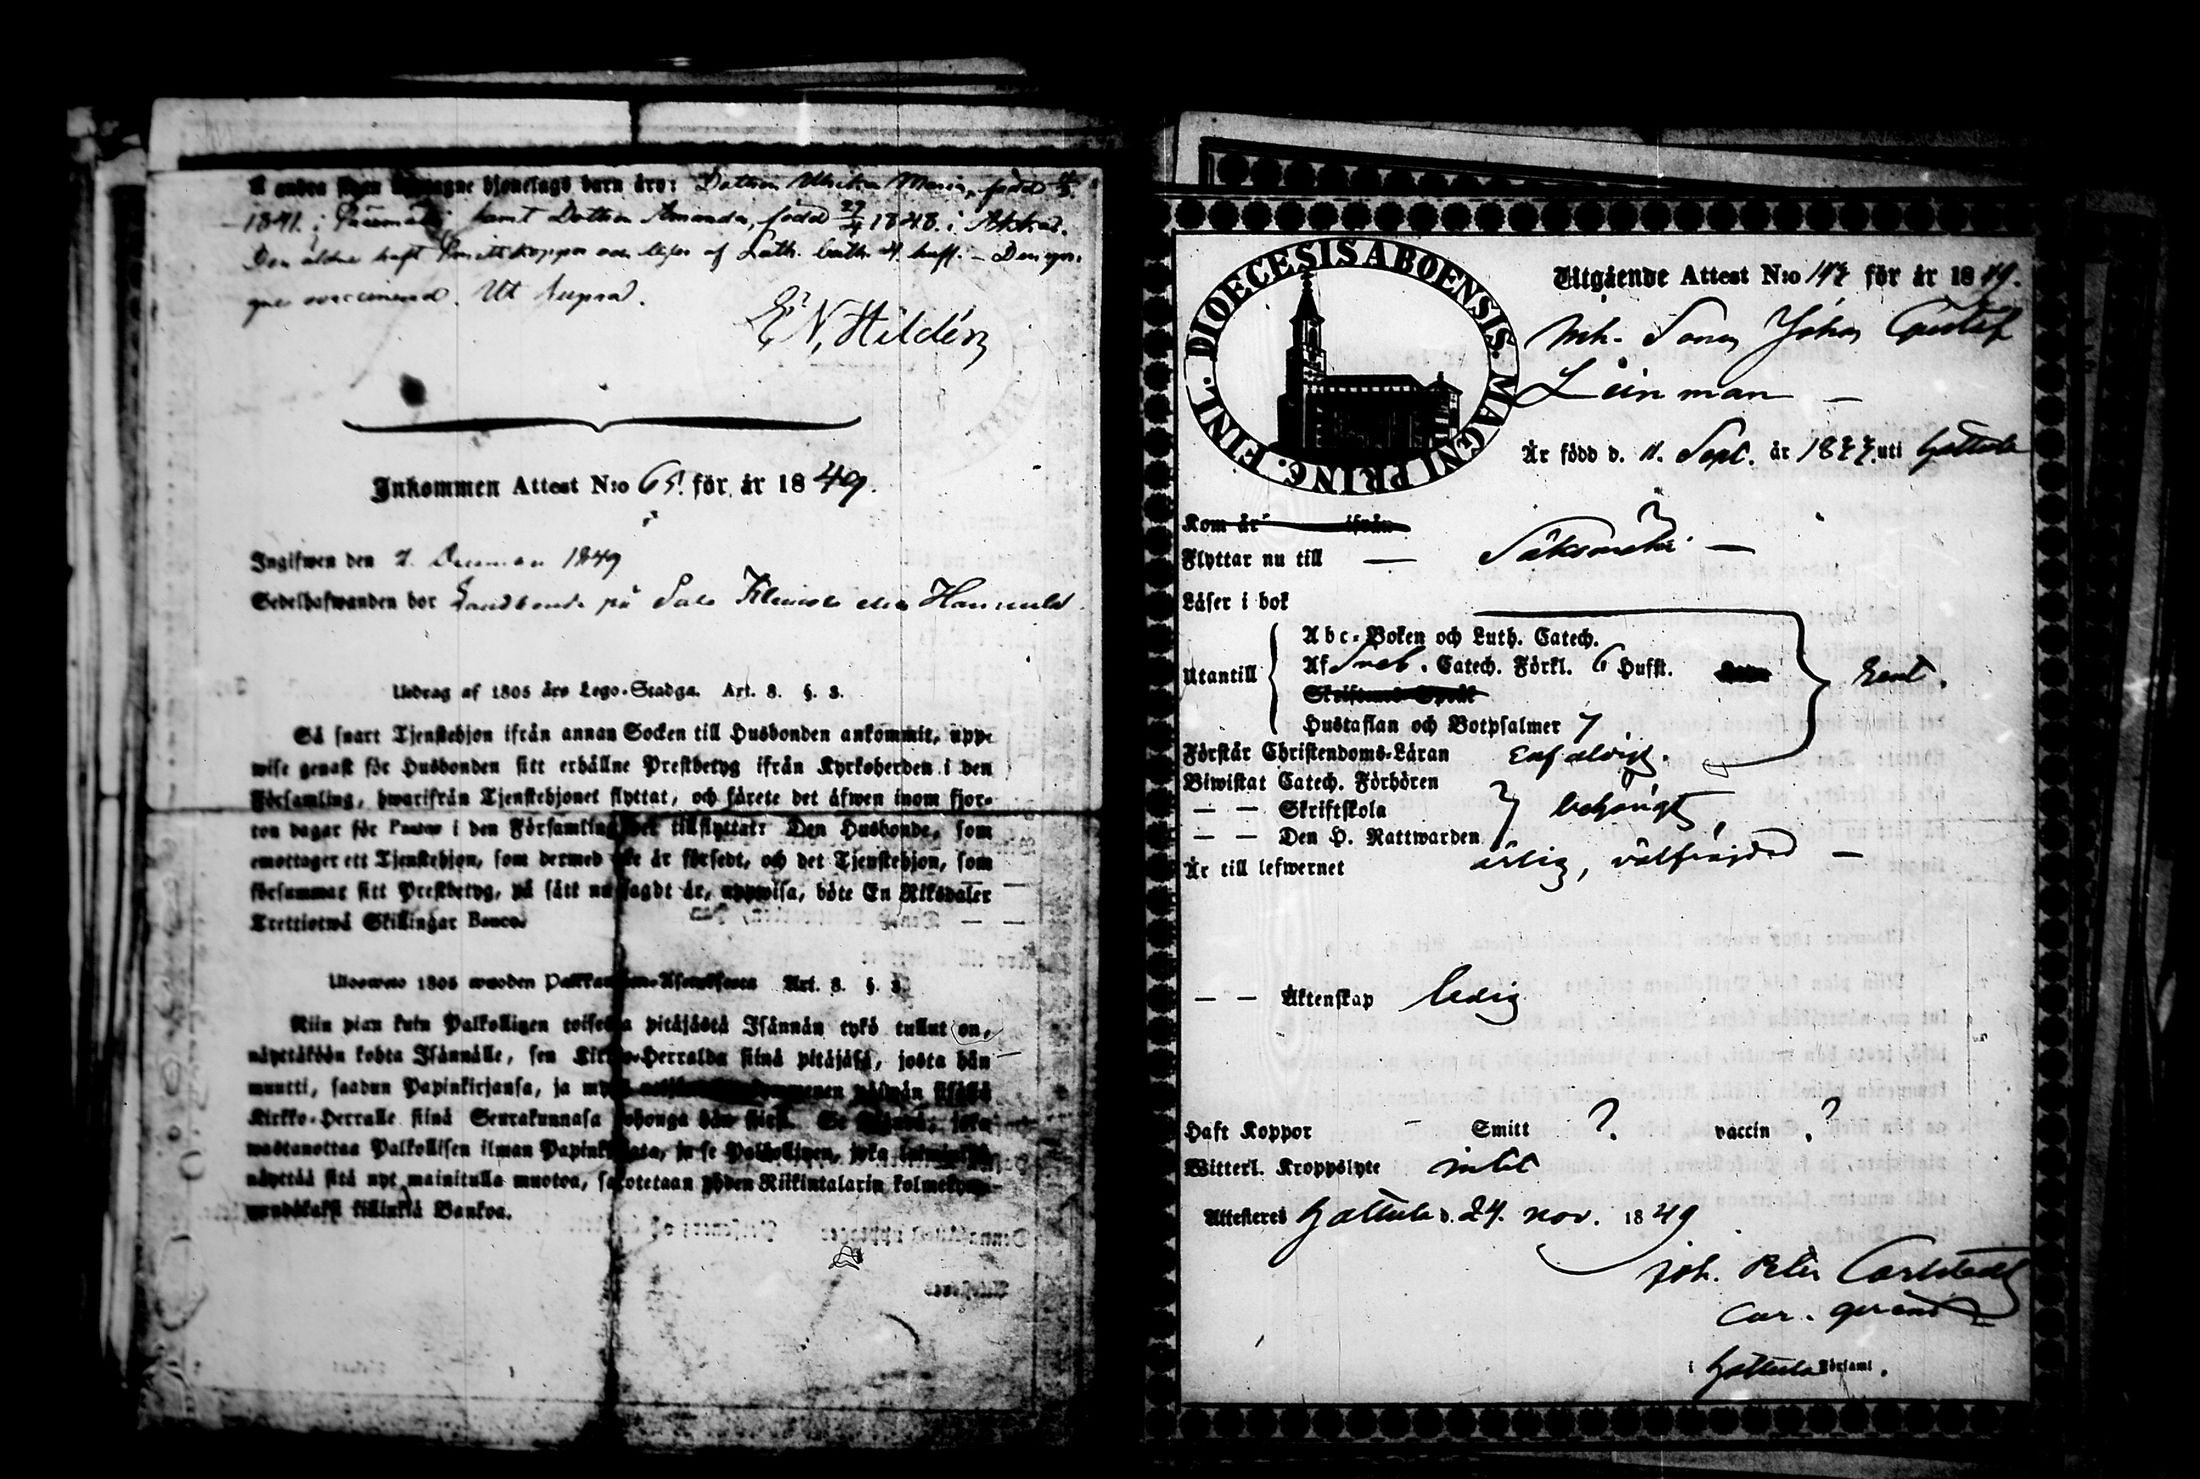 barn äro: Dottren Ulrika Maria, född
1841. i samt Dottren Amanda, född 27/4 1848. i
Den äldre haft och läser af Luth. Cath. 4 huff. – Den yn-
gre vaccinerad. Ut supra.
E. N. Hildén
Inkommen Attest N:o 65. för år 1849.
Ingifwen den 2. 1849
Sedelhafwanden bor på Sala Hannula
Utdrag af 1805 års Lego-Stadga. Art. 8. §. 3.
Så snart Tjenstehjon ifrån annan Socken till Husbonden ankommit, upp-
wise genast för Husbonden sitt erhållne Prestbetyg ifrån Kyrkoherden i den
Församling, hwarifrån Tjenstehjonet flyttat, och förete det äfwen inom fjor-
ton dagar för i den Församling det tillflyttat: Den Husbonde, som
emottager ett Tjenstehjon, som dermed icke är försedt, och det Tjenstehjon, som
försummar sitt Prestbetyg, på sätt nu sagdt är, uppwisa, böte En Riksdaler
Trettiotwå Skillingar Banco.
1805 wuoden Art. 8. §. 3.
Niin pian kuin Palkollinen toisesta pitäjästä Isännän tykö tullut on,
näyttäköön kohta Isännälle, sen Kirkko-Herralda siinä pitäjäsä, josta hän
muutti, saadun Papinkirjansa, ja päiwän sisällä
Kirkko-Herralle siinä Seurakunnasa johonga hän siirsi. Se Isändä, joka
wastanottaa Palkollisen ilman Papinkirjata, ja se Palkollinen, joka
näyttää sitä nyt mainitulla muotoa, sakotetaan yhden Riikintalarin
killinkiä Bankoa.
DIOECESIS ABOENSIS. MAGNI PRINC. FINL.
Utgående Attest N:o för år 1849.
Inh. Sonen Johan Gustaf
Leinman –
Är född d. 11. Sept. år uti Hattula
Kom år ifrån
Flyttar nu till — Sääksmäki —
Läser i bok
Abc-Boken och Luth. Catech.
Utantill Af Sveb. Catech. Förkl. 6 Hufst.
Rent.
Skriftens Språk
Hustaflan och Botpsalmer 7
Förstår Christendoms-Läran Enfaldigt.
Biwistat Catech. Förhören
— — Skriftskola behörigt
— — Den H. Nattwarden
Är till lefwernet ärlig, välfräjdad —
— — Äktenskap ledig
Haft Koppor – Smitt ?. vaccin ?
Witterl. Kroppslyte intet
Attesteres Hattula d. 24. nov. 1849
Joh. Peter Carlstedt
Cur. gerens
i Hattula Församl.